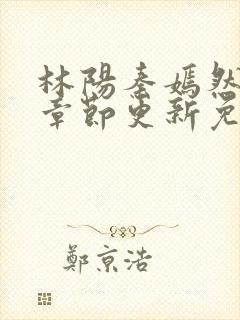 林陽秦嫣然
章節更新免
鄭京浩